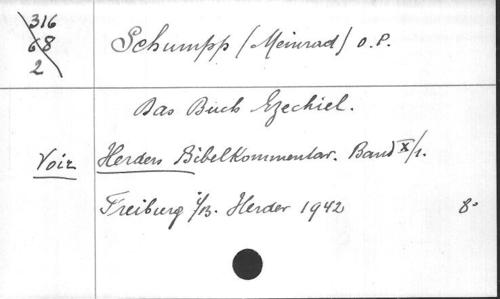 316
68
2
Schumpp (Meinrad) O.P.
Das Buch Ezechiel.
Voir Herders Bibelkommentar. Band X/1.
Freiburg i/B. Herder 1942 8°